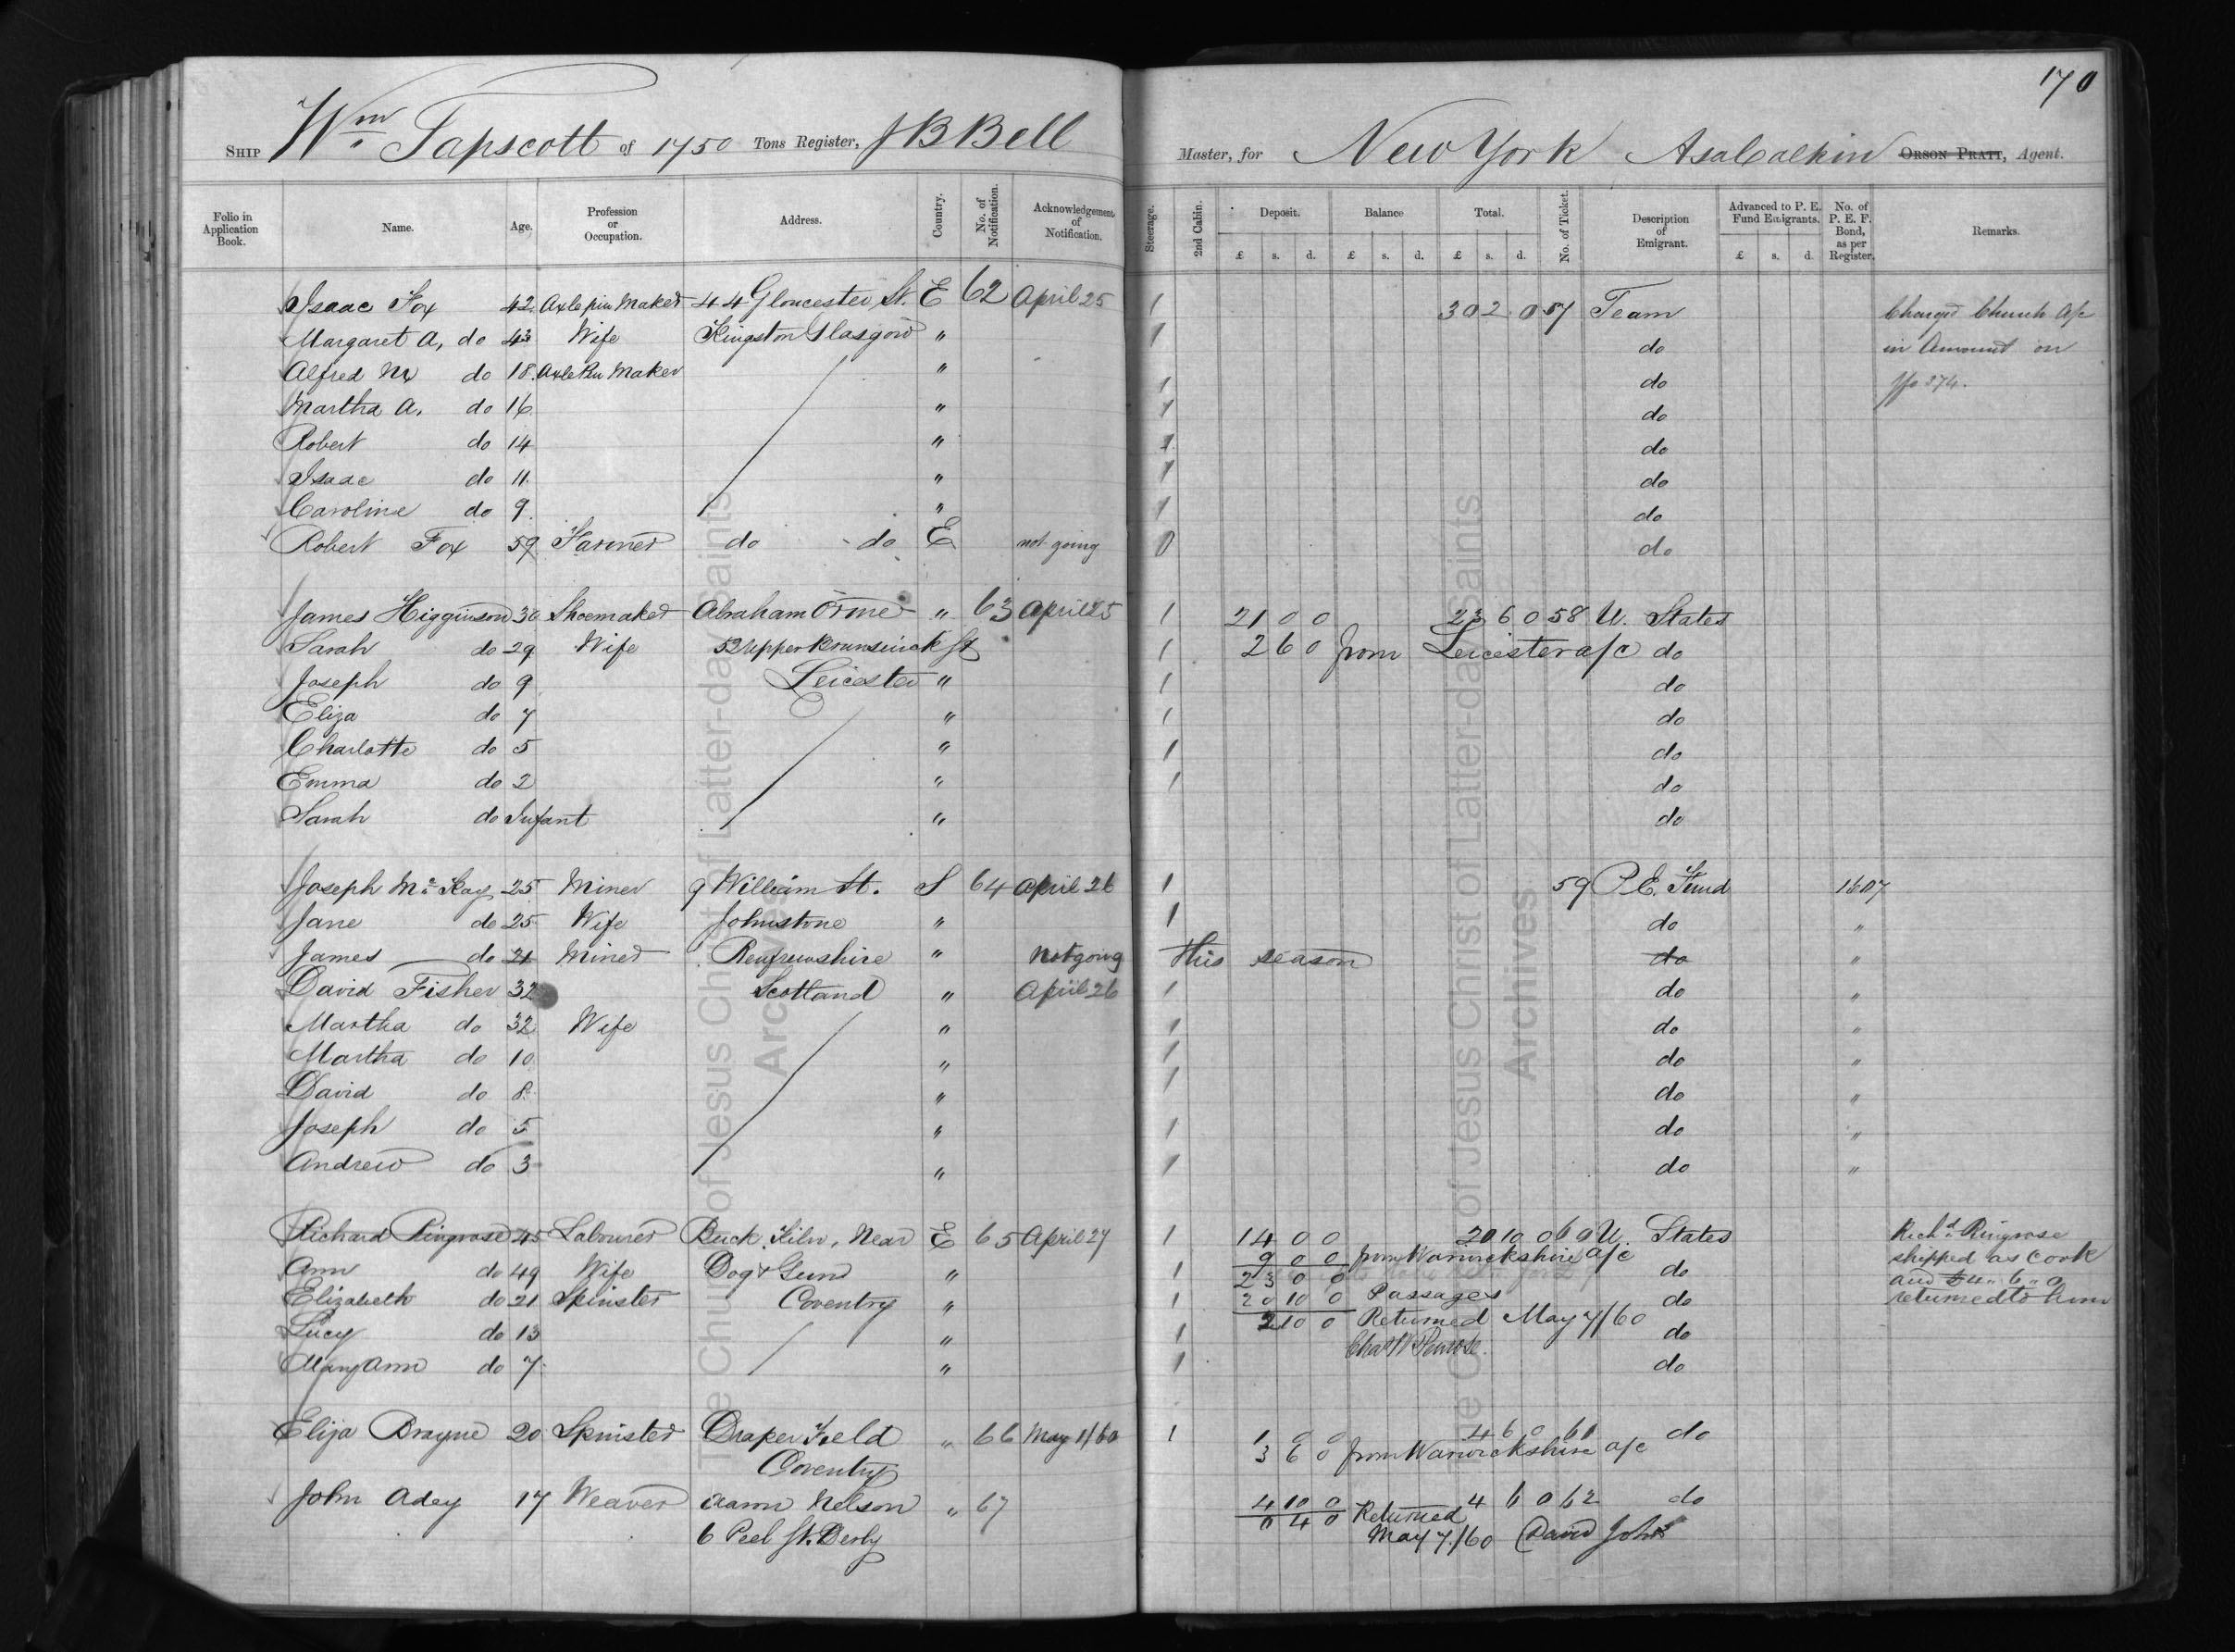 170
SHIP Wm Tapscott of 1750 Tons Register, J B Bell Master, for New York Asa Calkin ORSON PRATT, Agent.
Folio in Application Book. Name. Age. Profession or Occupation. Address. Country. No. of Notification. Acknowledgement of Notification. Steerage. 2nd Cabin. Deposit. Balance Total. No. of Ticket. Description of Emigrant. Advanced to P. E. Fund Emigrants. No. of P. E. F. Bond, as per Register. Remarks.
£ s. d. £ s. d. £ s. d. £ s. d.
Isaac Fox 42 Axle pin Maker 44 Gloucester St. E 62 April 25 1 30 2 0 57 Team Charged Church a/c
Margaret A, do 43 Wife Kingston Glasgow " 1 do in Amount on
Alfred do 18 Axle Pin Maker " 1 do 374.
Martha A. do 16 " 1 do
Robert do 14 " 1 do
Isaac do 11 " 1 do
Caroline do 9 " 1 do
Robert Fox 59 Farmer do do E not going 0 do
James Higginson 30 Shoemaker Abraham Orme " 63 April 25 1 21 0 0 23 6 0 58 U. States
Sarah do 29 Wife 52 Upper Brunswick St 1 2 6 0 from Leicester a/c do
Joseph do 9 Leicester " 1 do
Eliza do 7 " 1 do
Charlotte do 5 " 1 do
Emma do 2 " 1 do
Sarah do Infant " do
Joseph Mc Kay 25 Miner 9 William St. S 64 April 26 1 59 P.E. Fund 1607
Jane do 25 Wife Johnstone " 1 do "
James do 21 Miner Renfrewshire " Not going this season do "
David Fisher 32 Scotland " April 26 1 do "
Martha do 32 Wife " 1 do "
Martha do 10 " 1 do "
David do 8 " 1 do "
Joseph do 5 " 1 do "
Andrew do 3 " 1 do "
Richard Ringrose 45 Labourer Brick Kiln, Near E 65 April 27 1 14 0 0 20 10 0 60 U. States Richd Ringrose
9 0 0 from Warwickshire a/c shipped as cook
Ann do 49 Wife Dog & Gun " 1 23 0 0 do and £4 " 6 " 0
Elizabeth do 21 Spinster Coventry " 1 20 10 0 Passages do returned to him
Lucy do 13 " 1 2 10 0 Returned May 7/60 do
Mary Ann do 7 " 1 Chas W Penrose. do
Eliza Brayne 20 Spinster Draper Field " 66 May 1/60 1 1 0 0 4 6 0 61 do
Coventry 3 6 0 from Warwickshire a/c
John Adey 17 Weaver Aaron Nelson " 67 4 10 0 4 6 0 62 do
0 4 0 Returned
6 Peel St. Derby May 7/60 David John
The Church of Jesus Christ of Latter-day Saints
Archives
The Church of Jesus Christ of Latter-day Saints
Archives